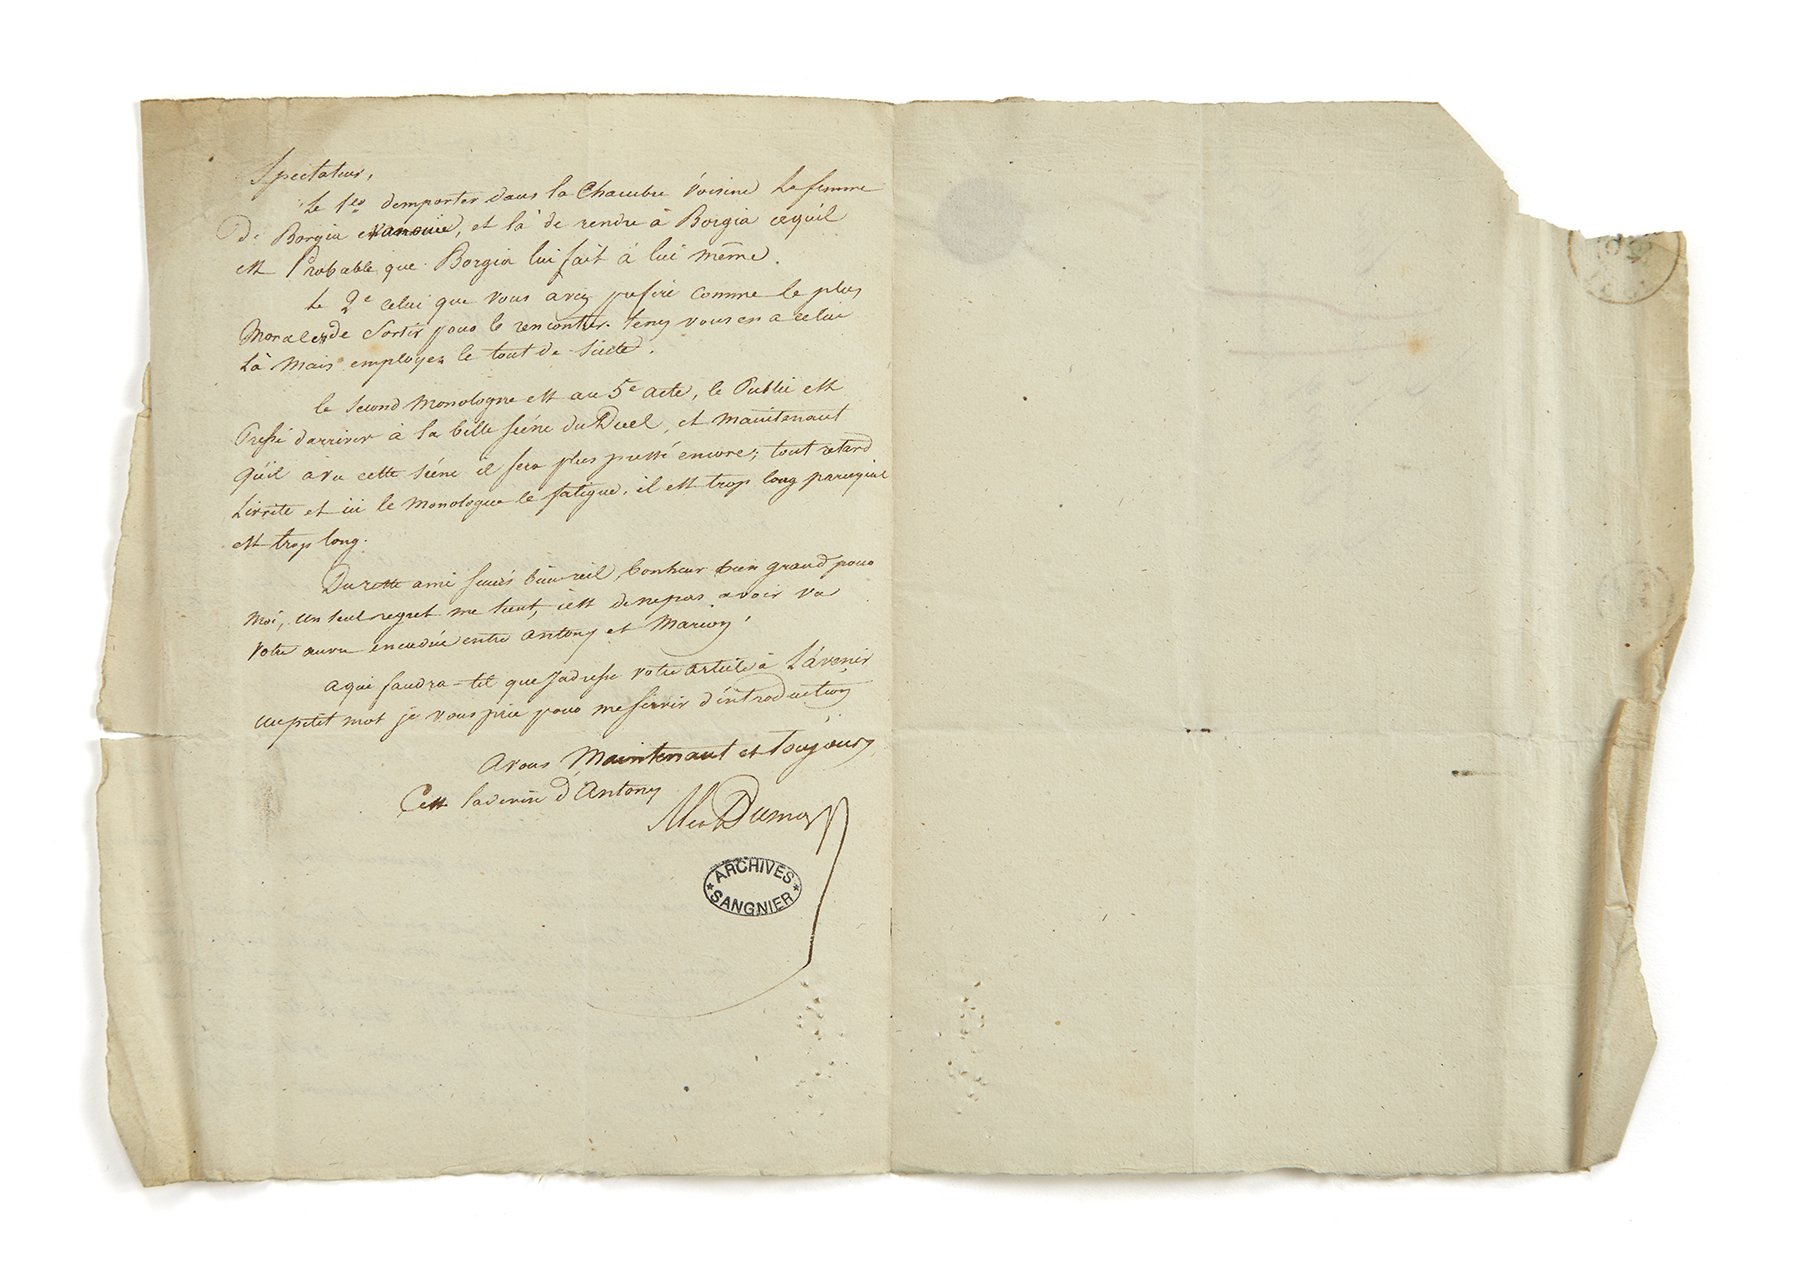 Spectateur,
Le 1er d'emporter dans la Chambre voisine la femme
de Borgia evanouie, et là de rendre à Borgia cequil
est Probable que Borgia lui fait à lui même.
Le 2e celui que vous avez preferé comme le plus
Moral de sortir pour le rencontrer. tenez vous en a celui
là mais employez le tout de suite.
le second Monologue est au 5e acte, le Public est
Pressé darriver à la belle scéne du Duel, et maintenant
qu'il a vu cette scéne il sera plus pressé encore; tout retard
L'irrite et ici le monologue le fatigue, il est trop long parcequil
est trop long.
Du reste ami succés bonheur bien grand pour
moi, un seul regret me tient, c'est de nepas avoir vu
votre encadrée entre Antony et Marion.
a qui faudra-til que J'adresse votre article à L'avenir
un petit mot je vous prie pour me servir d'introduction
a vous Maintenant et toujours
C'est d'Antony
Alex Dumas
ARCHIVES
SANGNIER